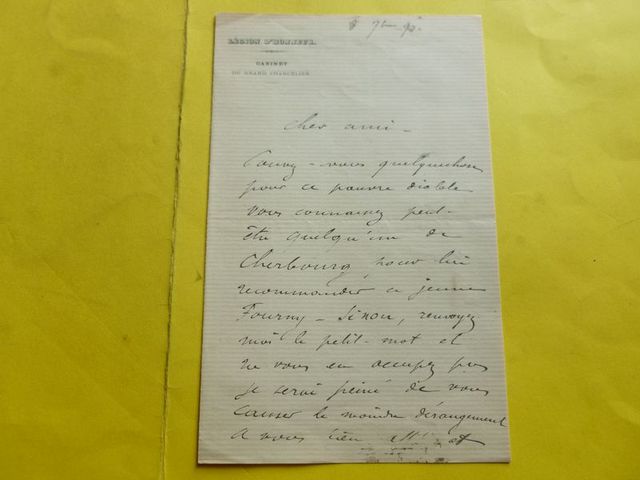 8 9bre 92.
LÉGION D'HONNEUR.
CABINET
DU GRAND CHANCELIER
Cher ami -
Pouvez-vous quelquechose
pour ce pauvre diable
Vous connaissez peut-
être quelqu'un de
Cherbourg, pour lui
recommander ce jeune
Fourny - Sinon, renvoyez
moi le petit-mot et
ne vous en occupez pas
je serai peiné de vous
causer le moindre dérangement
A vous bien